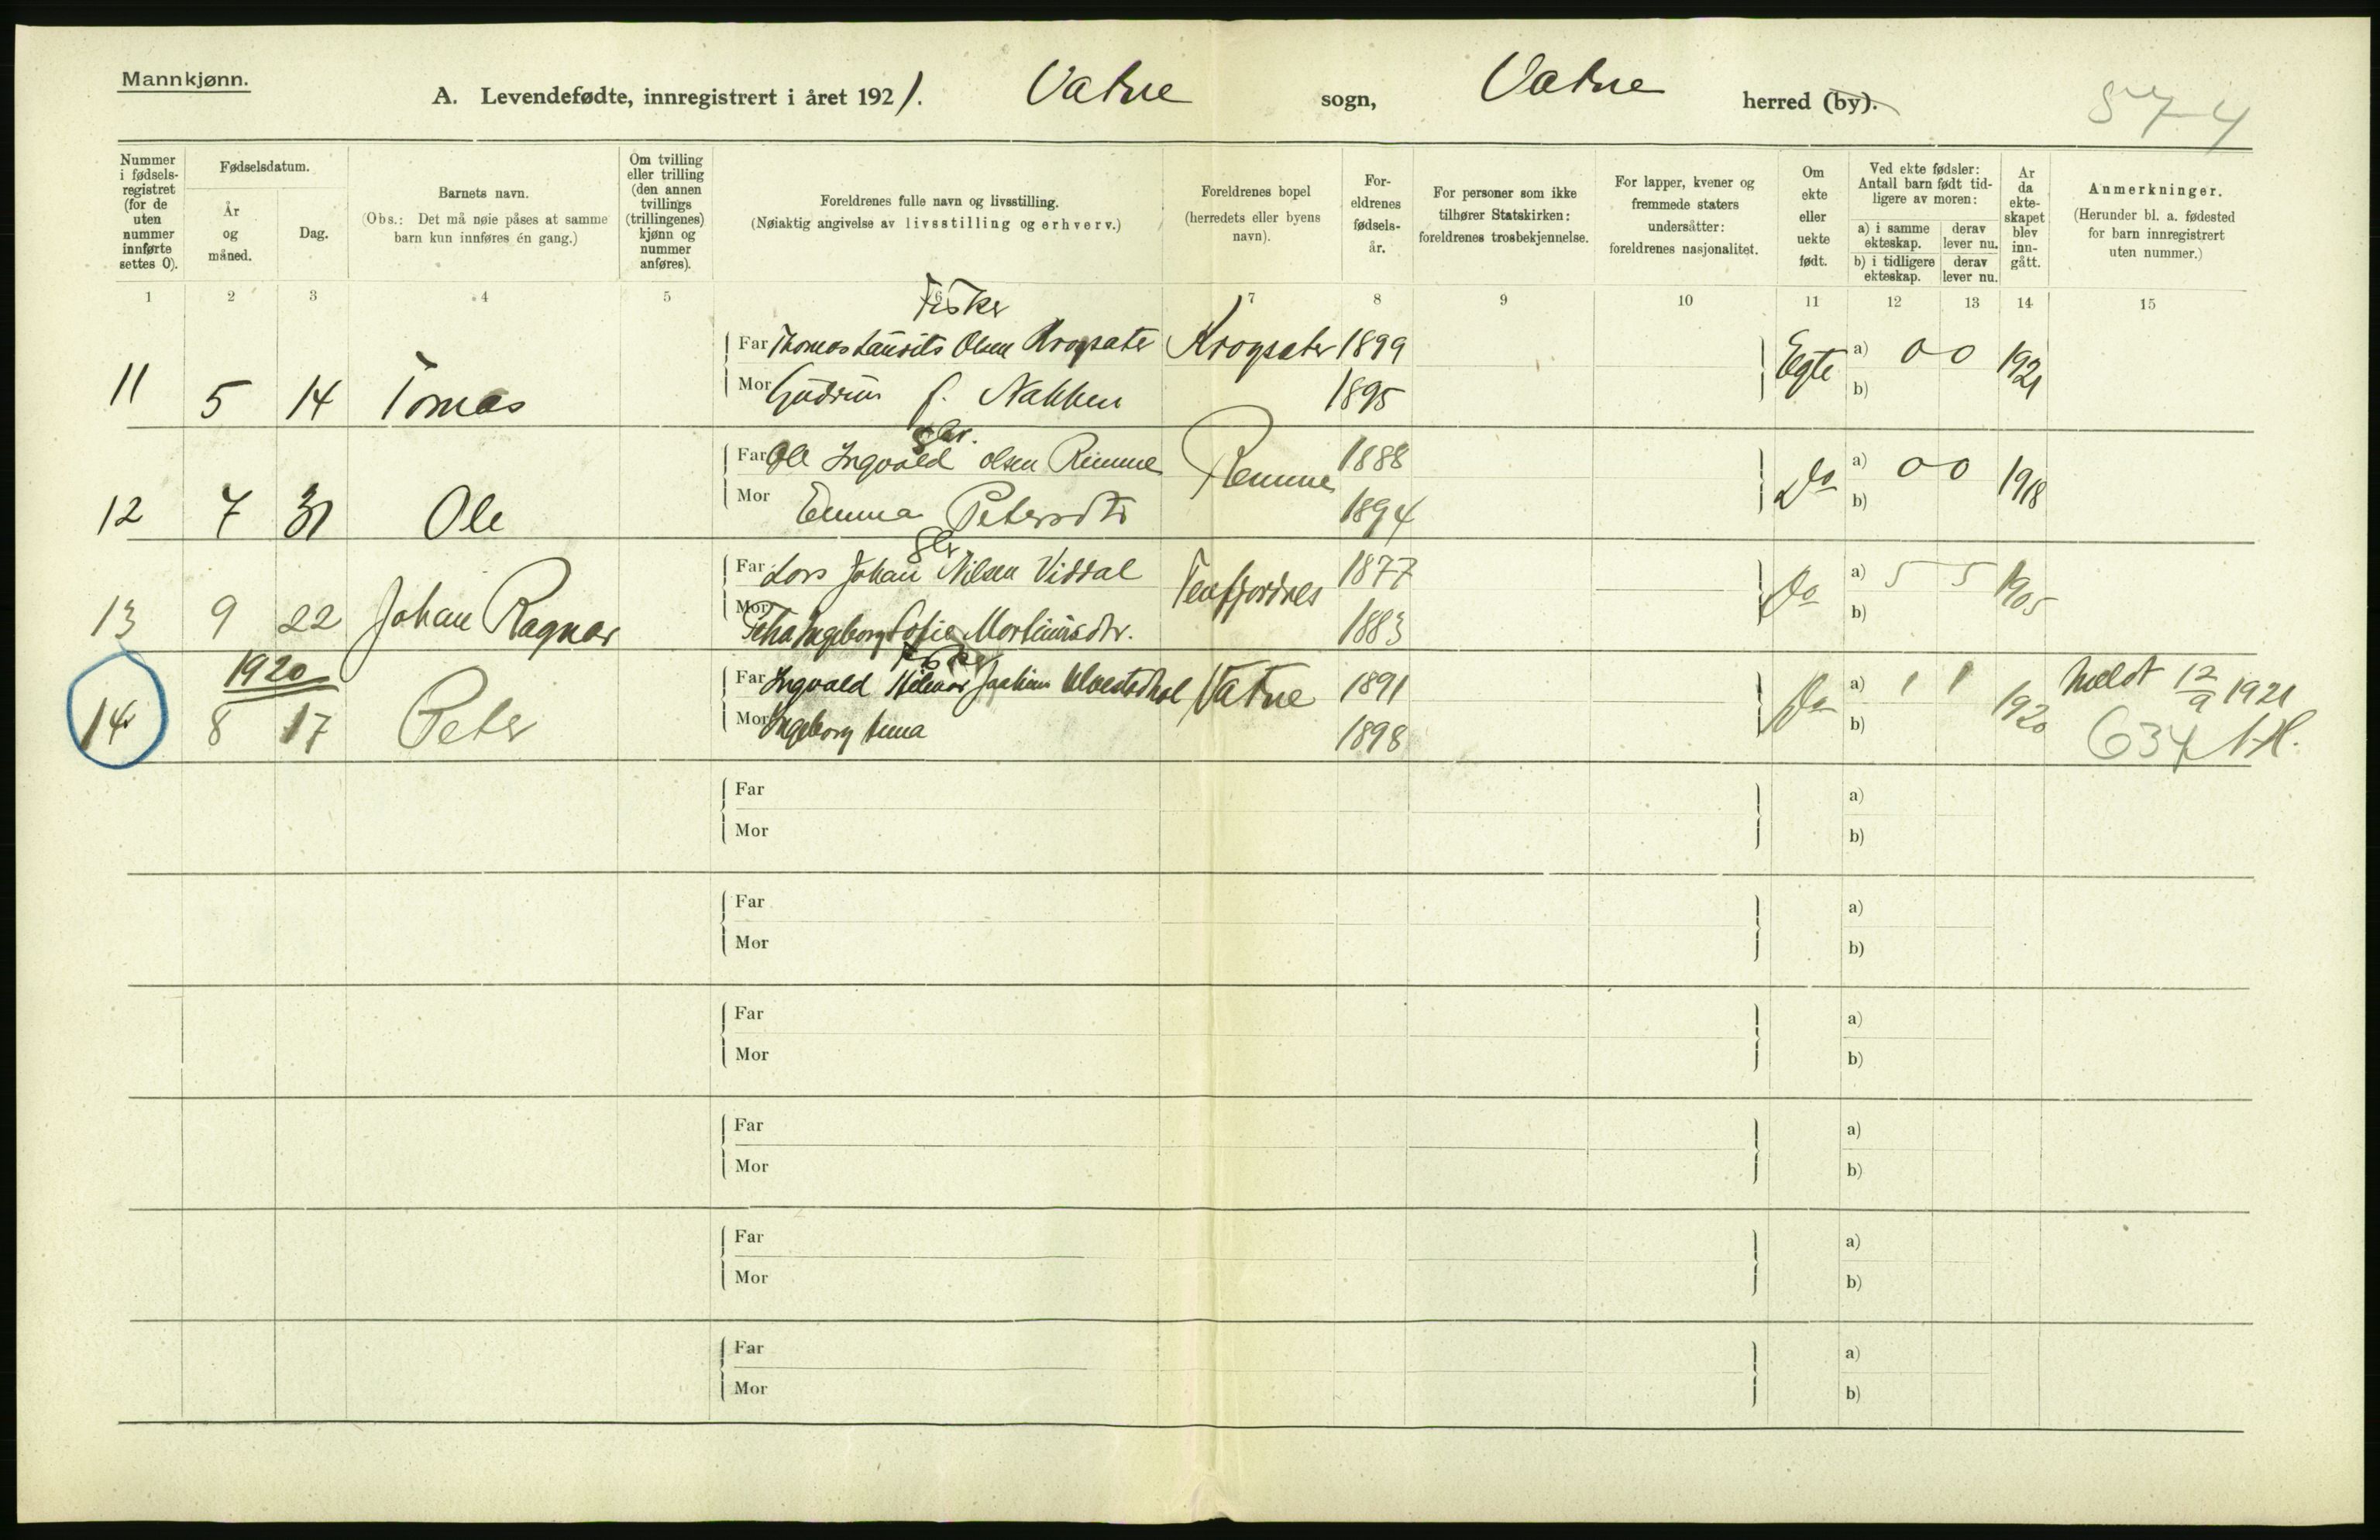 Mannkjønn.
A. Levendefødte, innregistrert i året 1921. Vatne sogn, Vatne herred (by).
574
Nummer i fødsels-registret (for de uten nummer innførte settes 0).
Fødselsdatum.
År og måned.
Dag.
Barnets navn.
(Obs.: Det må nøie påses at samme barn kun innføres én gang.)
Om tvilling eller trilling (den annen tvillings (trillingenes) kjønn og nummer anføres).
Foreldrenes fulle navn og livsstilling.
(Nøiaktig angivelse av livsstilling og erhverv.)
Foreldrenes bopel (herredets eller byens navn).
For-eldrenes fødsels-år.
For personer som ikke tilhører Statskirken: foreldrenes trosbekjennelse.
For lapper, kvener og fremmede staters undersåtter: foreldrenes nasjonalitet.
Om ekte eller uekte født.
Ved ekte fødsler: Antall barn født tid-ligere av moren:
a) i samme ekteskap. derav lever nu.
b) i tidligere ekteskap. derav lever nu.
År da ekte-skapet blev inn-gått.
Anmerkninger.
(Herunder bl. a. fødested for barn innregistrert uten nummer.)
1 2 3 4 5 6 7 8 9 10 11 12 13 14 15
Fisker
Far Thomas Laurits Olsen Krogsater Krogsater 1899 Egte a) 0 0 1921
11 5 14 Tomas Mor Gudrun f. Nakken 1895 b)
gbr.
Far Ole Ingvald Olsen Remme Remme 1888 Do a) 0 0 1918
12 7 31 Ole Mor Emma Petersdtr 1894 b)
gbr
Far Lars Johan Nilsen Viddal Tenfjordnes 1877 Do a) 5 5 1905
13 9 22 Johan Ragnar Mor Ingeborg Sofie Martinusdtr. 1883 b)
1920
Fisker
Far Ingvald Hilmar Joakim Ulvestadhal Vatne 1891 Do a) 1 1 1920 meldt 12/9 1921
14 8 17 Peter Mor Ingeborg Anna 1898 b) 634
Far a)
Mor b)
Far a)
Mor b)
Far a)
Mor b)
Far a)
Mor b)
Far a)
Mor b)
Far a)
Mor b)